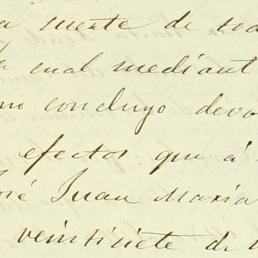 a mente de
la cual mediant
no concluyo devo
efectos que á
José Juan Maria
veintisiete de